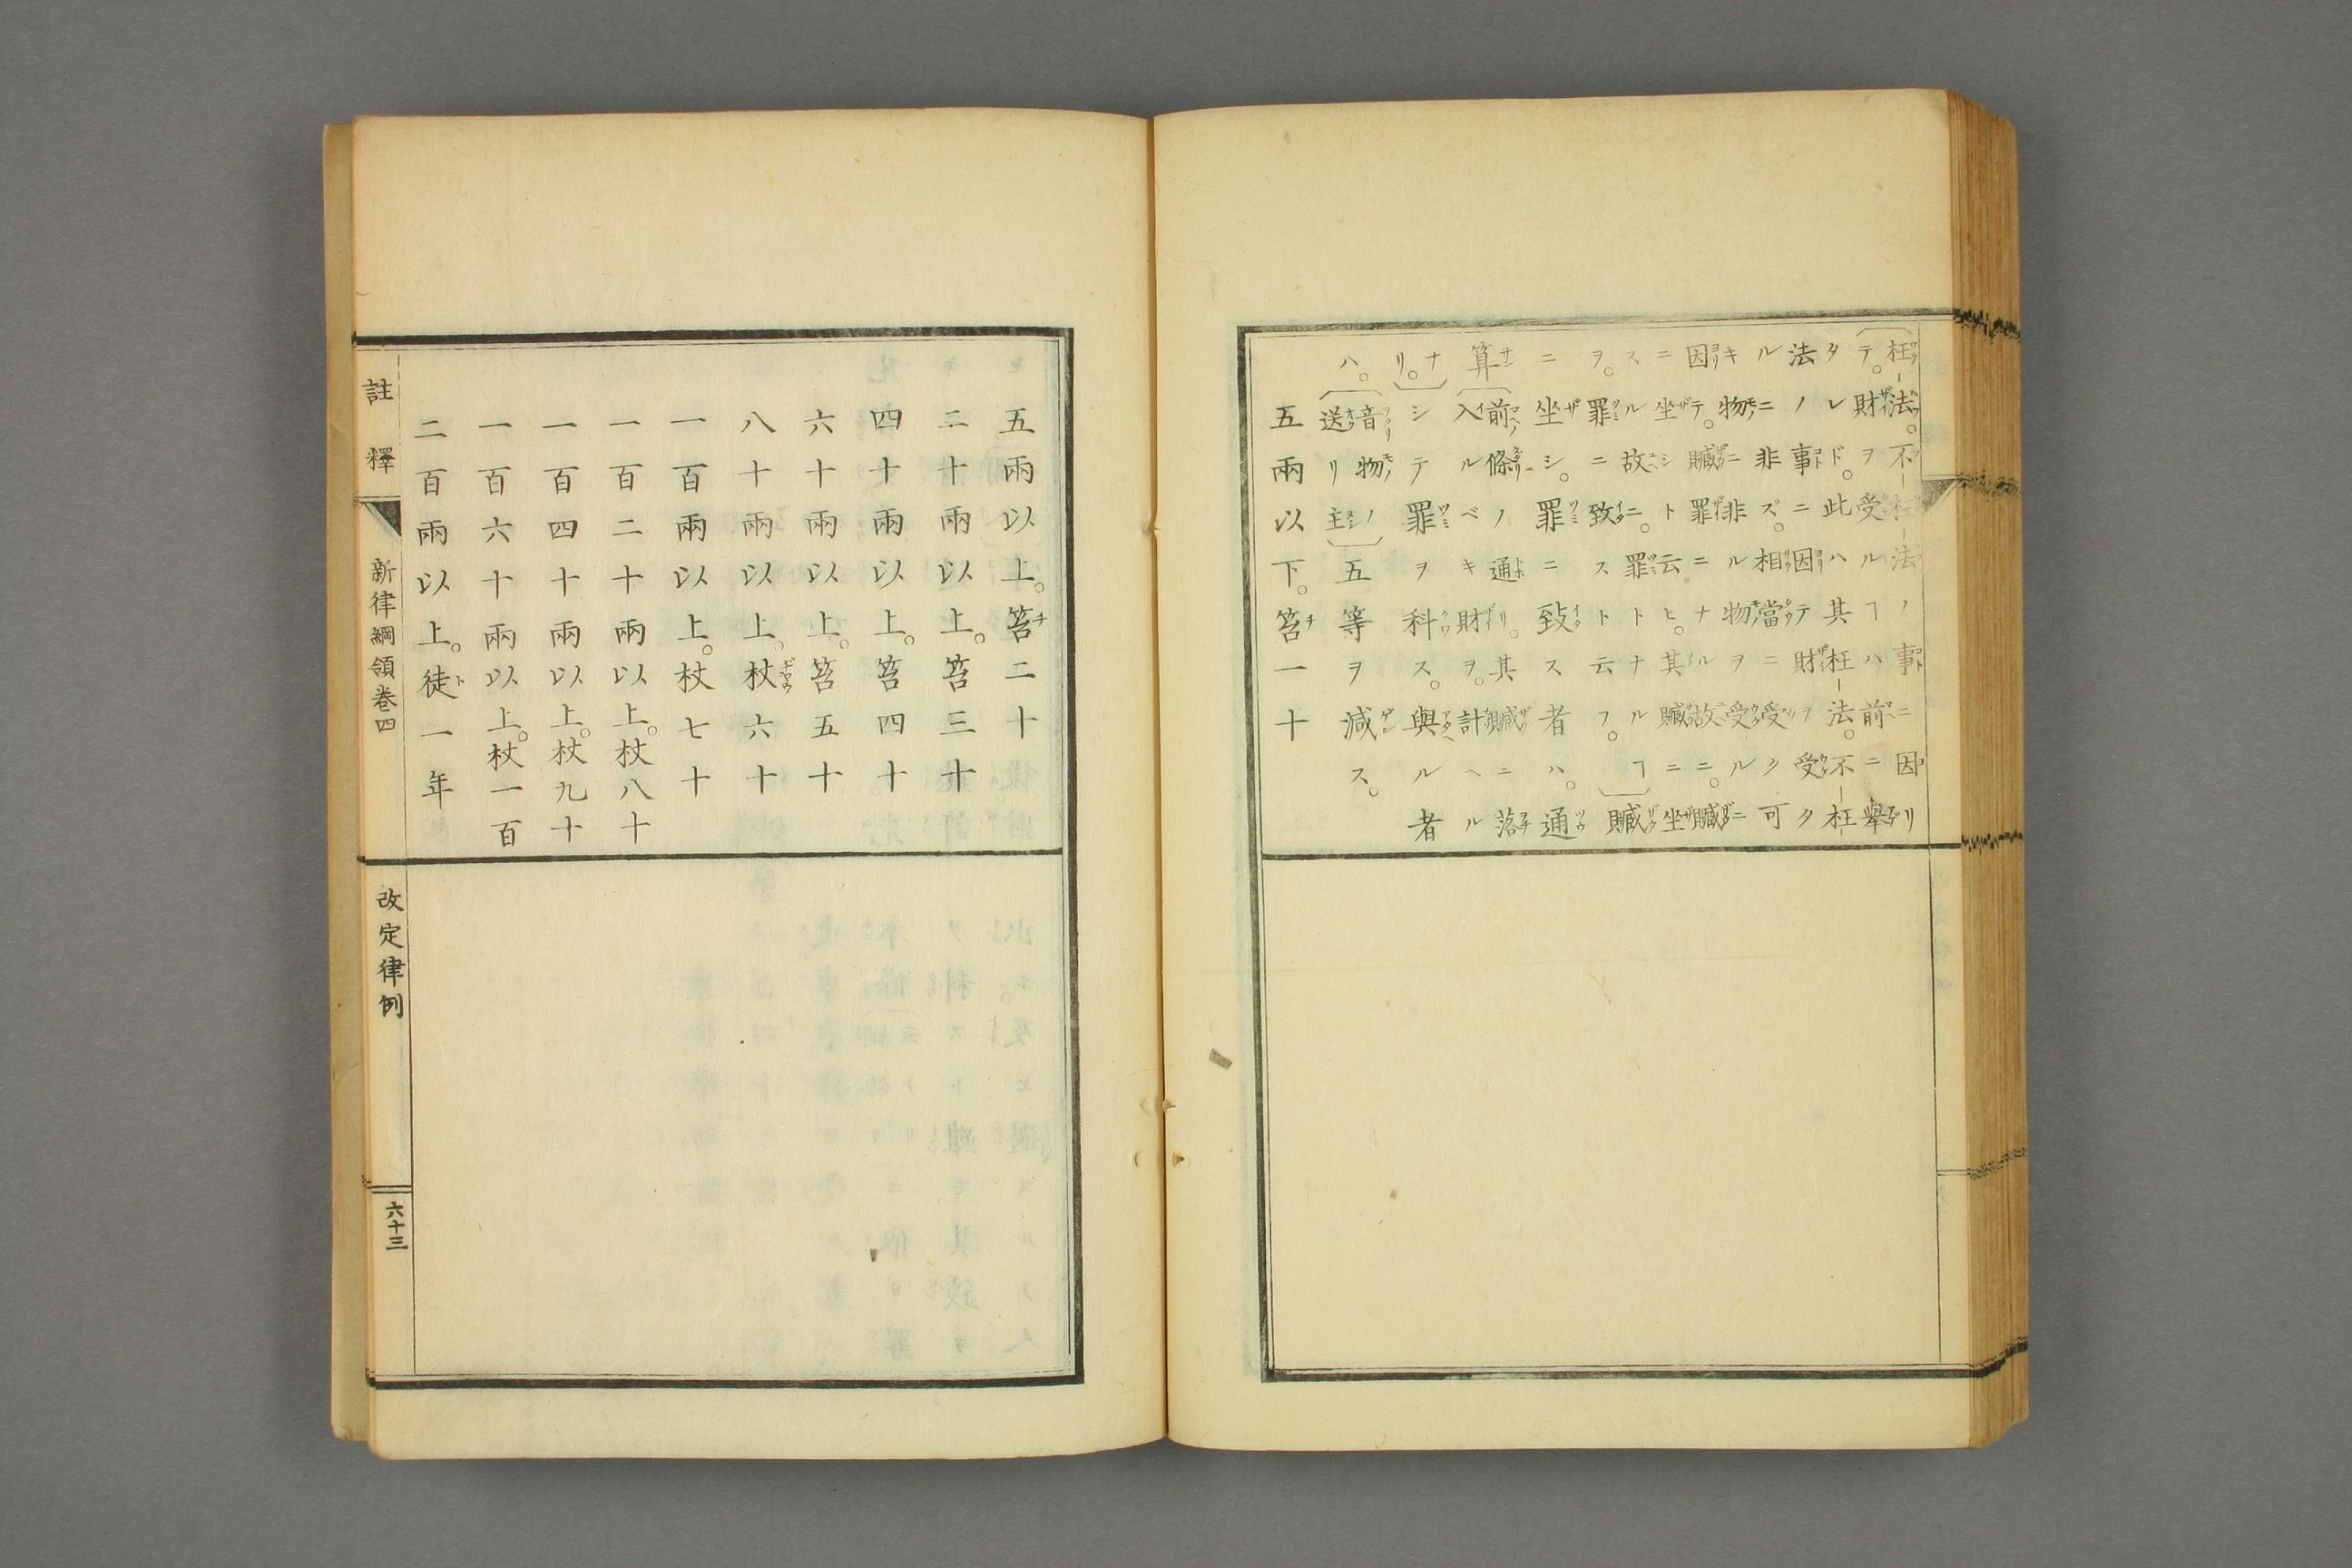 枉法。不枉法ノ事ニ因リ
テ。財ヲ受ルヿハ前ニ擧
タレド。此ハ其枉法。不枉
法ノ事ニ因テ財ヲ受タ
ルニ非ズ。相當ニ受ク可
キ物ニ非ル物ヲ受ルニ
因テ。贓罪ニナル故ニ。贓
ニ坐シト云ヒ。其贓ニ坐
スル故ニ。罪トナルヿ
ヲ。罪ニ致スト云フ。贓
ニ坐シ。罪ニ致ス者ハ。通
算前條ノ通リ。其贓ニ落
入ルベキ財ヲ。計ヘル
ナリ。シテ罪ヲ科ス。與ル者
ハ。音物ノ送リ主五等ヲ減ス。
五兩以下。笞一十
五兩以上。笞二十
二十兩以上。笞三十
四十兩以上。笞四十
六十兩以上。笞五十
八十兩以上。杖六十
一百兩以上。杖七十
一百二十兩以上。杖八十
一百四十兩以上。杖九十
一百六十兩以上。杖一百
二百兩以上。徒一年
註釋 新律綱領卷四 改定律例 六十三